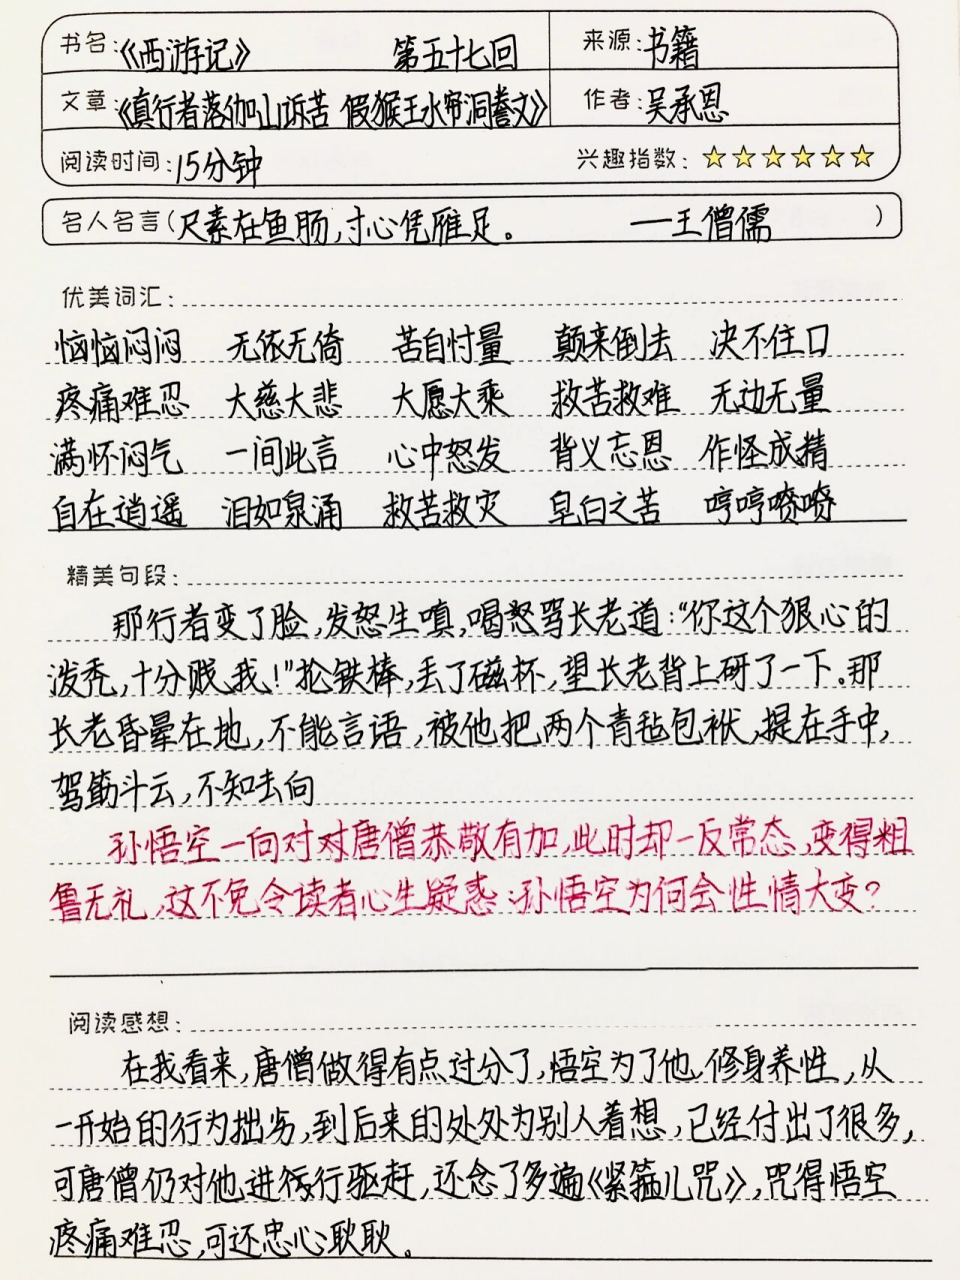 书名:《西游记》 第五十七回 来源:书籍
文章:《真行者落伽山诉苦 假猴王水帘洞誊文》 作者:吴承恩
阅读时间:15分钟 兴趣指数:☆☆☆☆☆☆
名人名言(尺素在鱼肠,寸心凭雁足。 —王僧儒)
优美词汇:
恼恼闷闷 无依无倚 苦自忖量 颠来倒去 决不住口
疼痛难忍 大慈大悲 大愿大乘 救苦救难 无边无量
满怀闷气 一闻此言 心中怒发 背义忘恩 作怪成精
自在逍遥 泪如泉涌 救苦救灾 皂白之苦 哼哼唦唦
精美句段:
那行者变了脸,发怒生嗔,喝怒骂长老道:“你这个狠心的
泼秃,十分贱我!”抡铁棒,丢了磁杯,望长老背上研了一下。那
长老昏晕在地,不能言语,被他把两个青毡包袱,提在手中,
驾筋斗云,不知去向
孙悟空一向对对唐僧恭敬有加,此时却一反常态,变得粗
鲁无礼,这不免令读者心生疑惑:孙悟空为何会性情大变?
阅读感想:
在我看来,唐僧做得有点过分了,悟空为了他,修身养性,从
一开始的行为拙劣,到后来的处处为别人着想,已经付出了很多,
可唐僧仍对他进行驱赶,还念了多遍《紧箍儿咒》,咒得悟空
疼痛难忍,可还忠心耿耿。